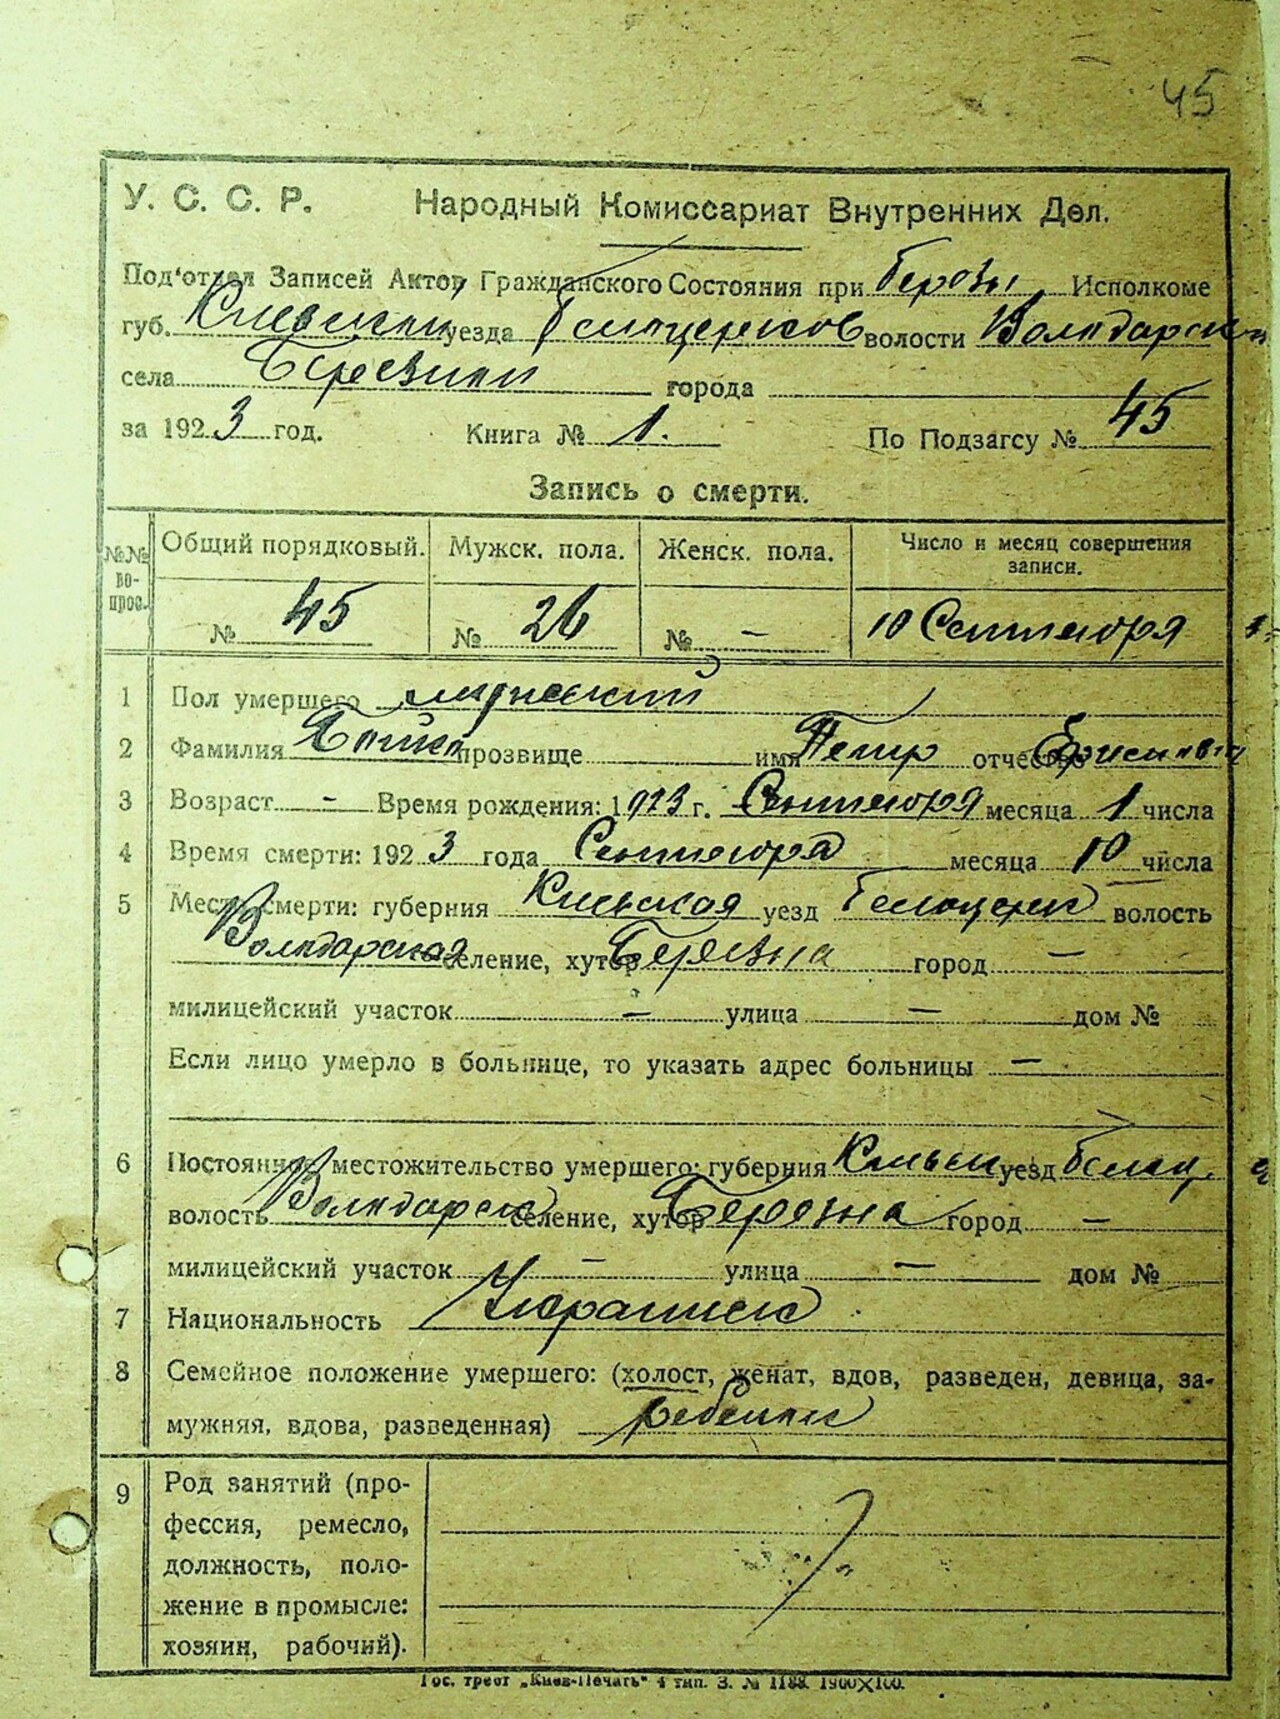 45
У. С. С. Р. Народный Комиссариат Внутренних Дел.
Под'отдел Записей Актов Гражданского Состояния при Исполкоме
губ. Киевской уезда Белоцерков волости Володарск
села города
за 1923 год. Книга № 1. По Подзагсу № 45
Запись о смерти.
№№ вопрос. Общий порядковый. Мужск. пола. Женск. пола. Число и месяц совершения записи.
№ 45 № 26 № - 10 Сентября
1 Пол умершего мужеский
2 Фамилия прозвище имя Петр отчество
3 Возраст - Время рождения: 1923 г. Сентября месяца 1 числа
4 Время смерти: 1923 года Сентября месяца 10 числа
5 Место смерти: губерния Киевская уезд Белоцерк волость
Володарская селение, хутор Березна город -
милицейский участок - улица - дом №
Если лицо умерло в больнице, то указать адрес больницы -
6 Постоянное местожительство умершего: губерния Киевск уезд Белоц.
волость Володарск селение, хутор Березна город -
милицейский участок - улица - дом №
7 Национальность Украинец
8 Семейное положение умершего: (холост, женат, вдов, разведен, девица, за-
мужняя, вдова, разведенная) ребенок
9 Род занятий (про-
фессия, ремесло,
должность, поло-
жение в промысле:
хозяин, рабочий).
Гос. трест „Киев-Печать" 4 тип. З. № 1188. 1900×100.